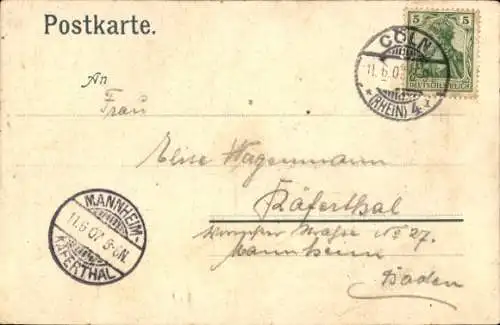 Postkarte.
5 5
DEUTSCHES REICH
CÖLN
11.6.07
* (RHEIN) 4
An
Frau
Elise Wagenmann
Käferthal
Straße No 27.
Mannheim
Baden
MANNHEIM-
11.6.07 8-9N
KÄFERTHAL